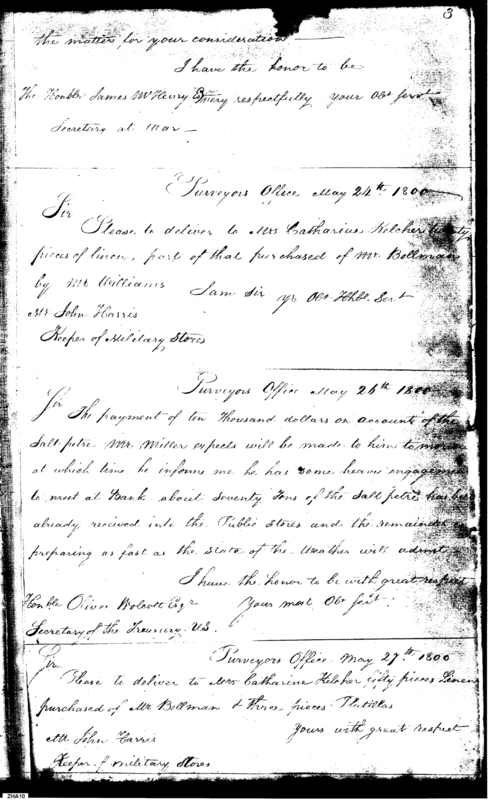 3
the matter for your consideration —
I have the honor to be
The Honble James McHenry Esq very respectfully your Obt Servt
Secretary at War —
Purveyors Office May 24th 1800
Sir
Please to deliver to Mrs Catharine Kelcher twenty
pieces of linen, part of that purchased of Mr. Bollman
by Mr Williams
I am Sir yr Obt Hhbl Sert
Mr John Harris
Keeper of Military Stores
Purveyors Office May 26th 1800
Sir
The payment of ten Thousand dollars on account of the
Salt petre Mr. Miller expects will be made to him
at which time he informs me he has some heavy
to meet at Bank about Seventy Tons of the Salt petre has
already received into the Public Stores and the remainder
preparing as fast as the state of the Weather will admit
I have the honor to be with great respect
Honble Oliver Wolcott Esqr Your most Obt Sert.
Secretary of the Treasury U.S.
Purveyors Office May 27th 1800
Sir
Please to deliver to Mrs Catharine Kelcher pieces Linen
purchased of Mr Bollman & three pieces Platillas
Yours with great respect
Mr John Harris
Keeper of Military Stores
ZHA10